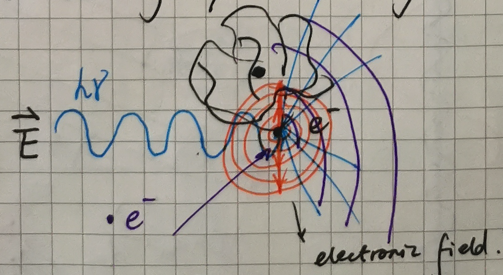 hν
E⃗
e⁻
• e⁻
electronic field.